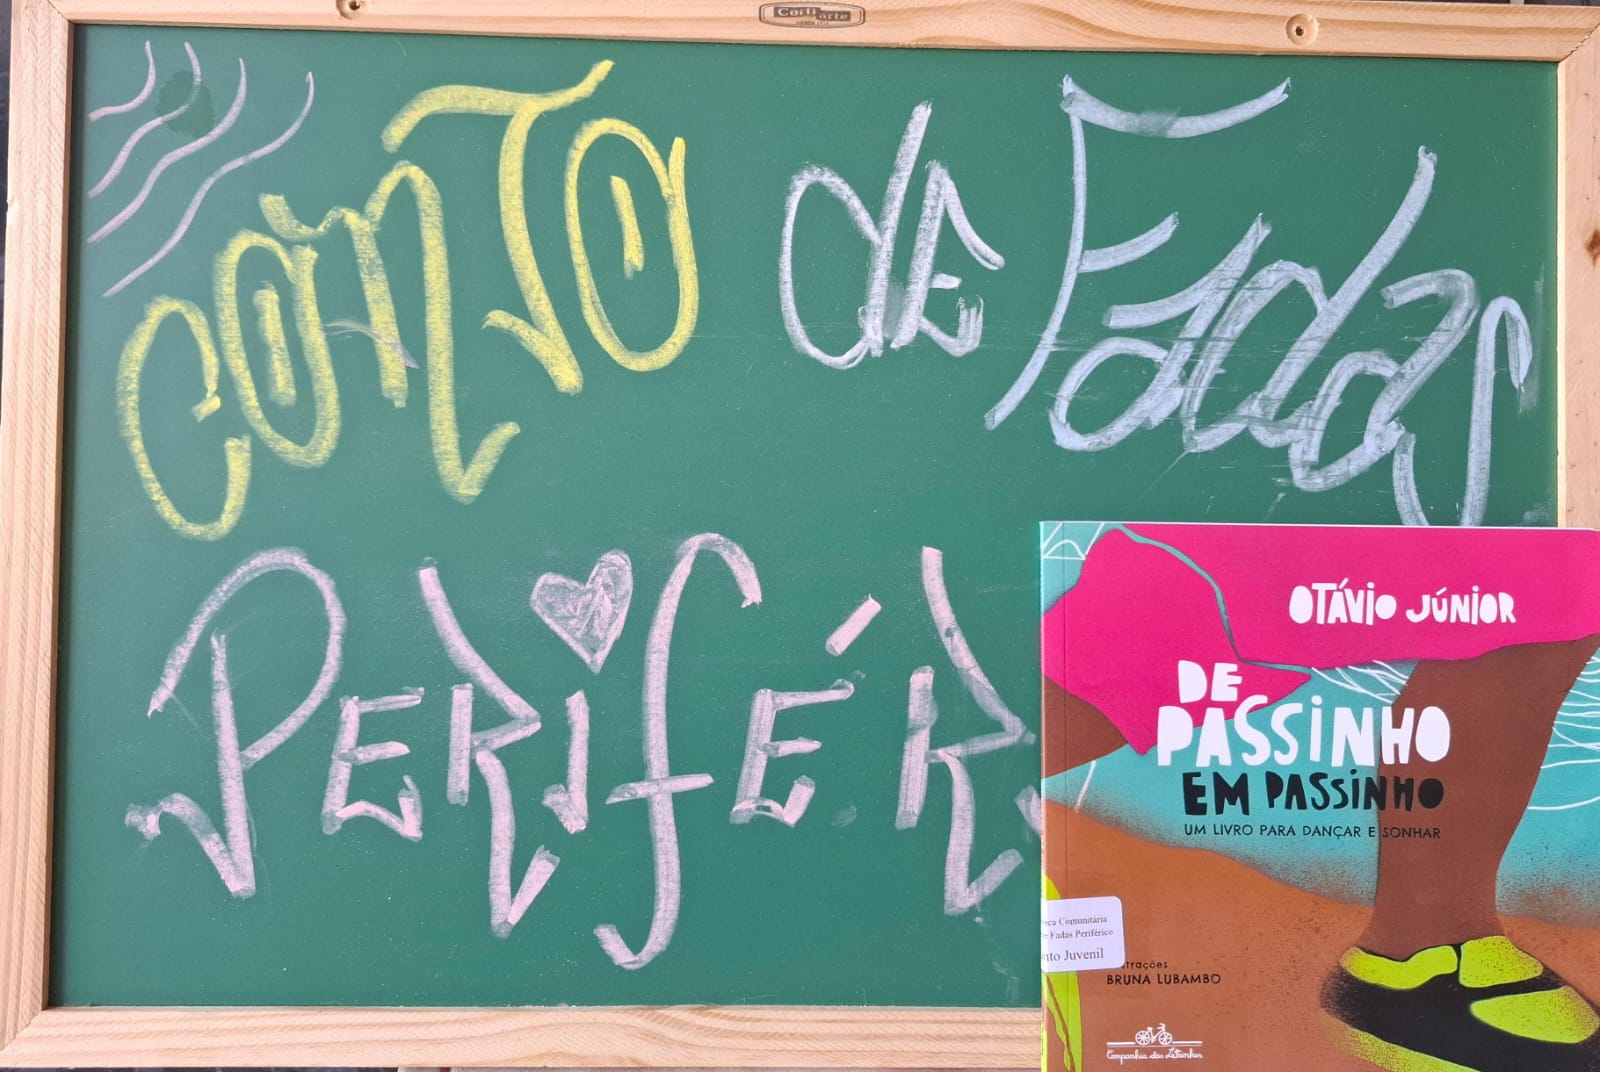 Cortiarte
CONTO de Fadas
PERIFÉR
OTÁVIO JÚNIOR
DE
PASSINHO
EM PASSINHO
UM LIVRO PARA DANÇAR E SONHAR
eca Comunitária
e Fadas Periférico
nto Juvenil
trações
BRUNA LUBAMBO
Companhia das Letrinhas